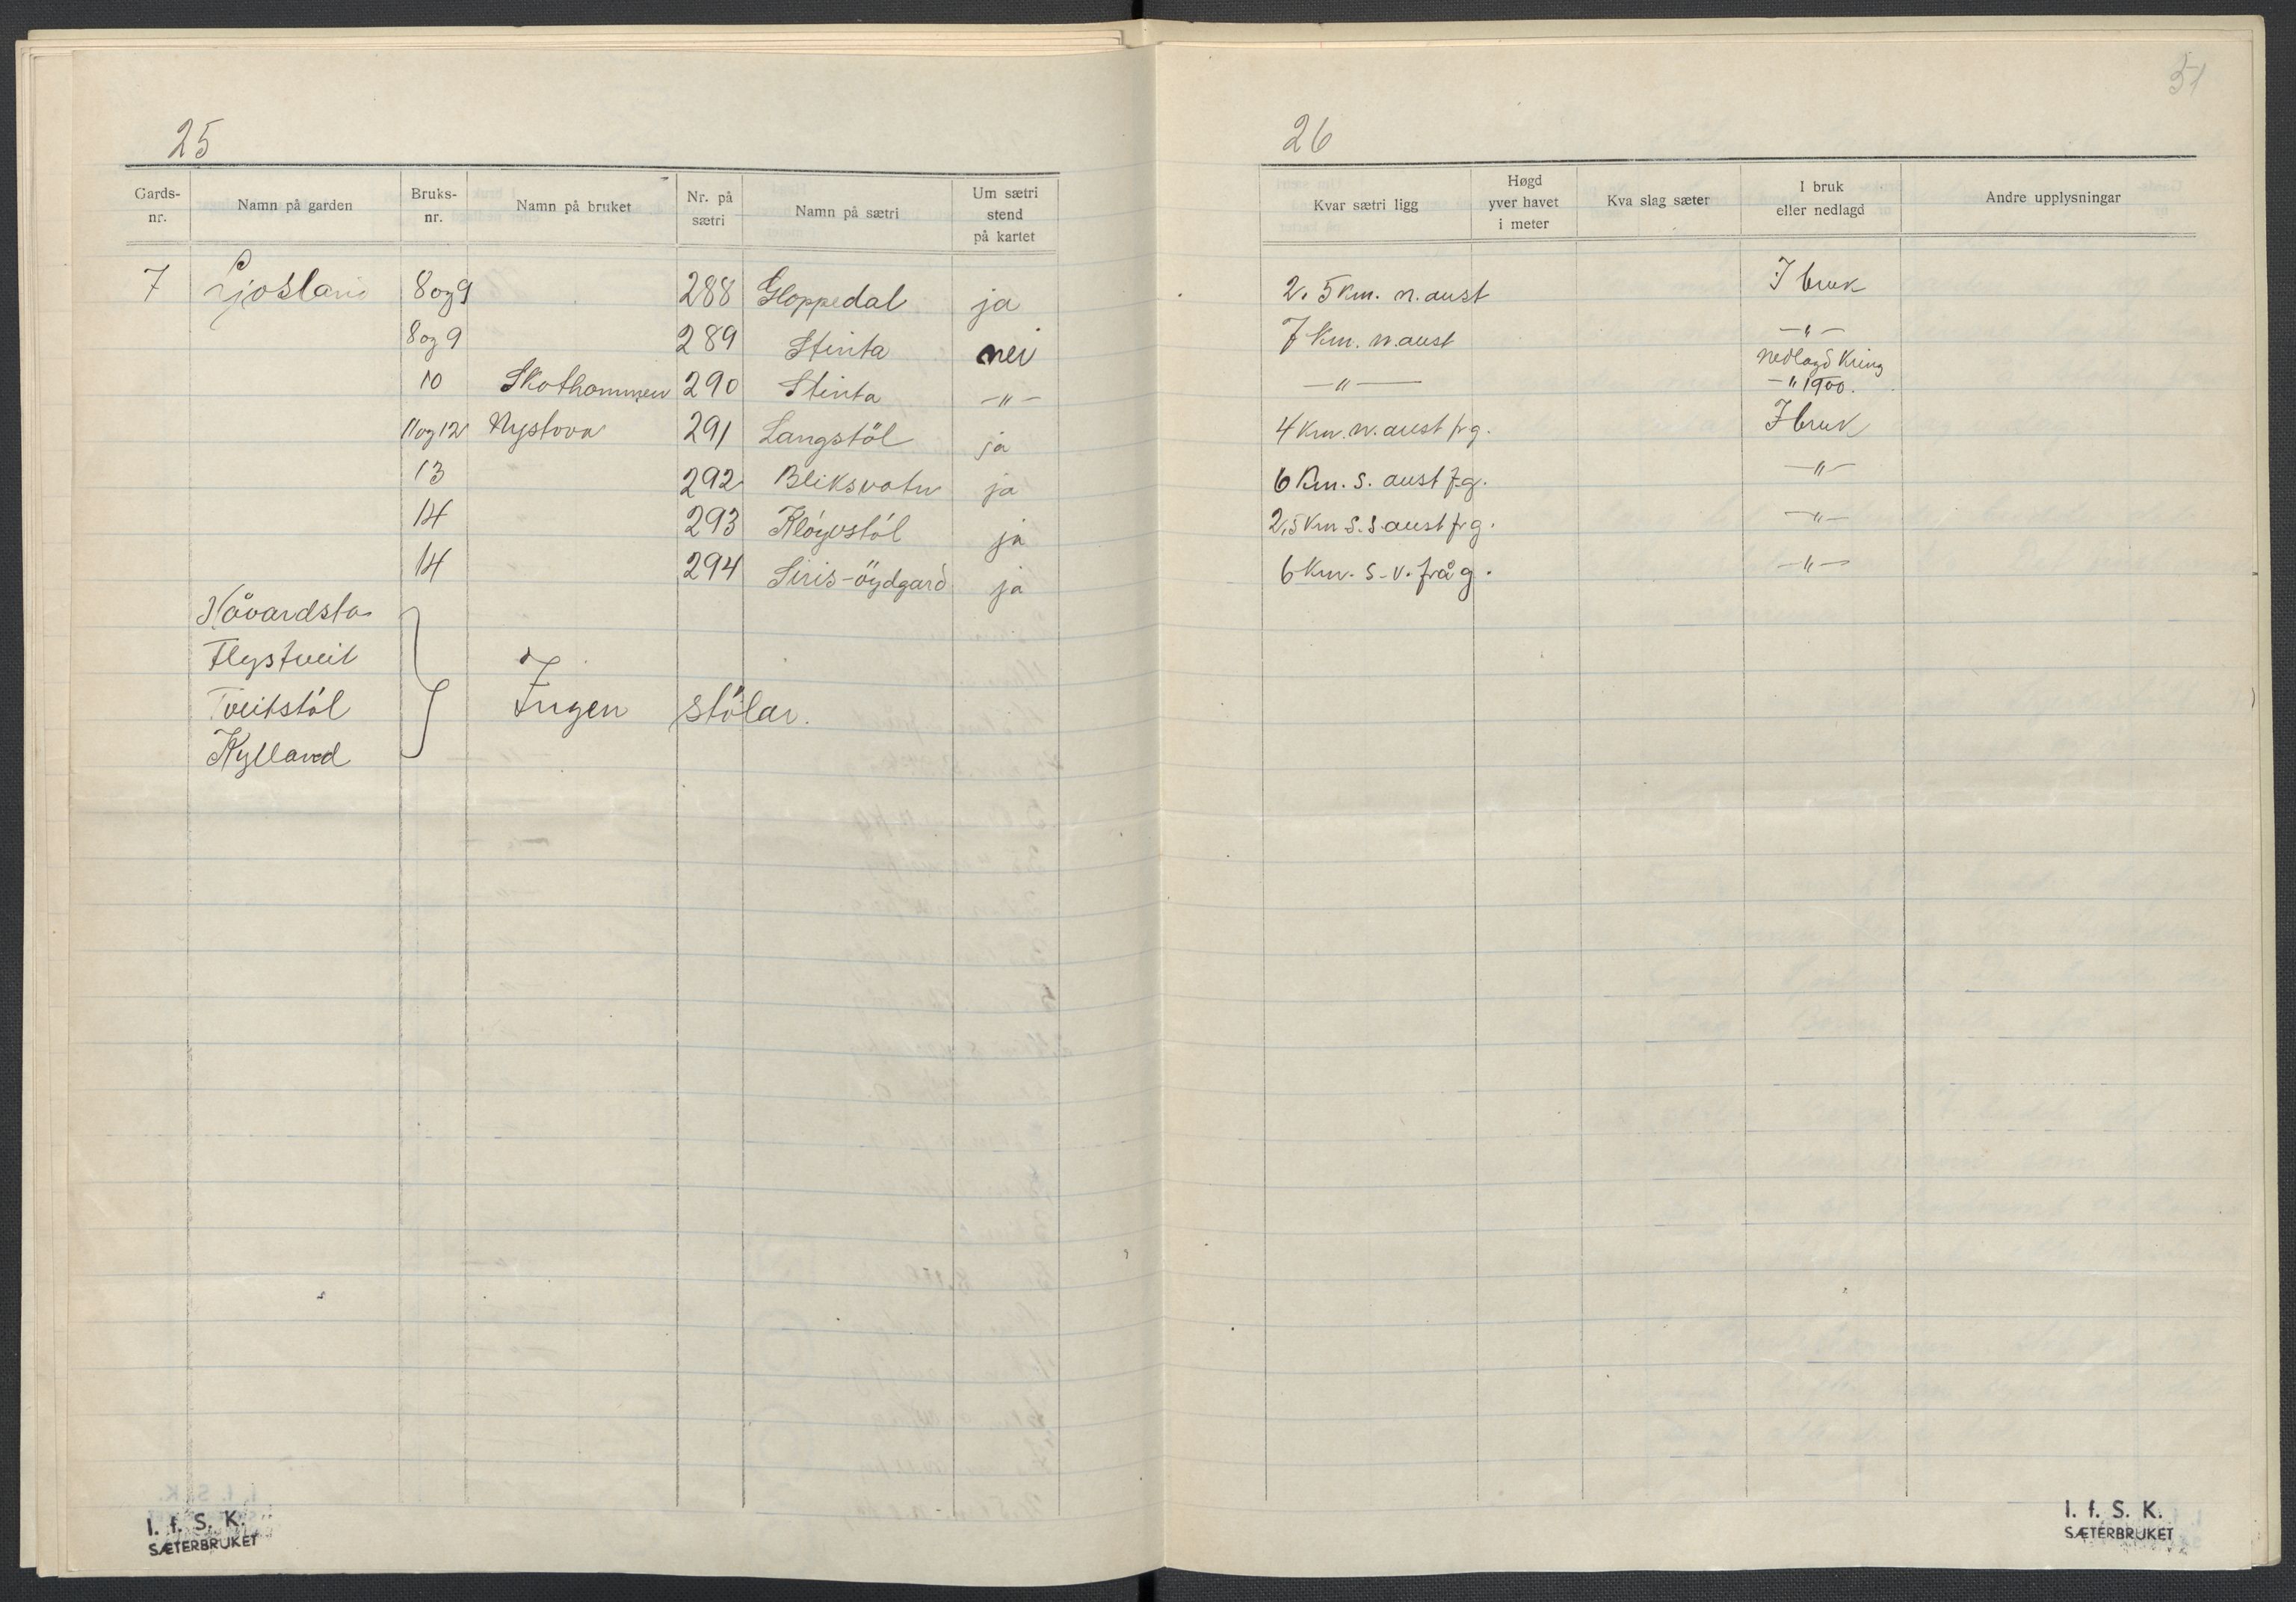 25
Gards-nr. Namn på garden Bruks-nr. Namn på bruket Nr. på sætri Namn på sætri Um sætri stend på kartet
7 Ljosland 8 og 9 288 Gloppedal ja
8 og 9 289 Stinta nei
10 Skothommen 290 Stinta -"-
11 og 12 Nystova 291 Langstöl ja
13 292 Bliksvatn ja
14 293 Klöyvstöl ja
14 294 Siris-öydgard ja
Håvardsta
Flystveit
Tveitstöl
Kylland
Ingen stölar.
I. f. S. K.
SÆTERBRUKET
51
26
Kvar sætri ligg Høgd yver havet i meter Kva slag sæter I bruk eller nedlagd Andre upplysningar
2.5 km. n. aust I bruk
7 km. n. aust -"-
-"- nedlagd kring
-"- 1900.
4 km. n. aust fr g. I bruk
6 km. s. aust f. g. -"-
2,5 km s. s. aust fr g. -"-
6 km. s-v. frå g. -"-
I. f. S. K.
SÆTERBRUKET